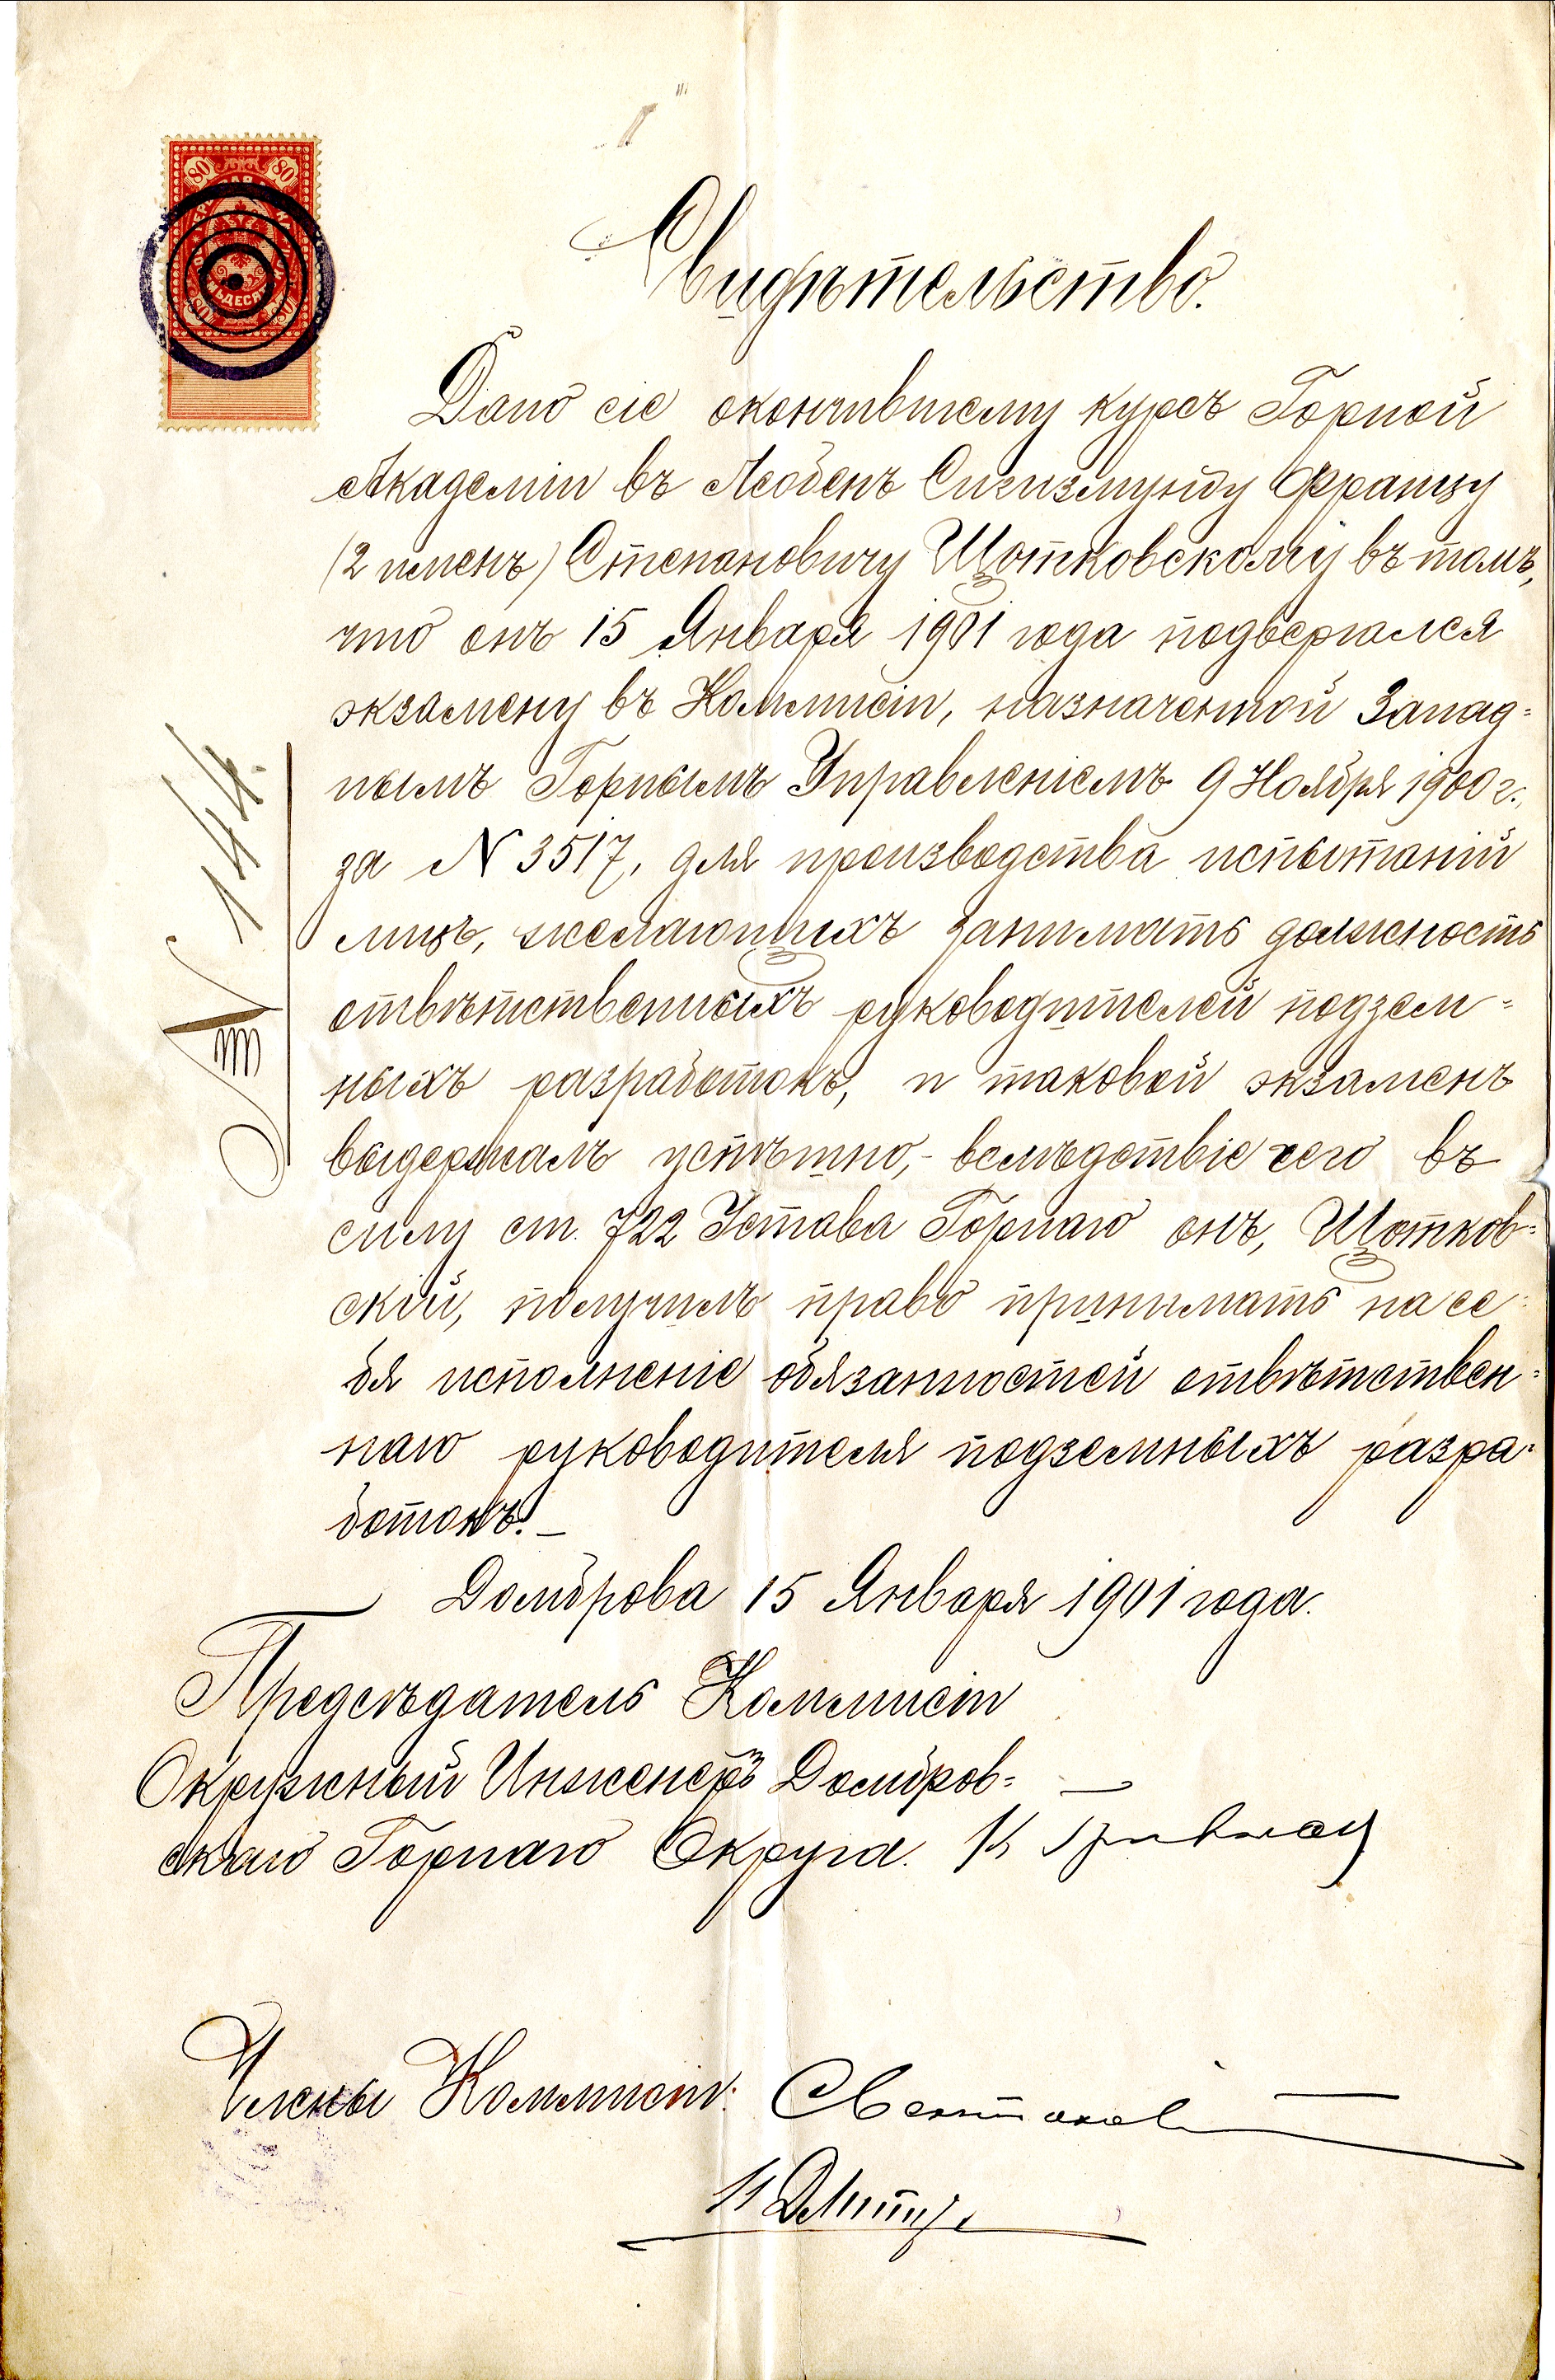 80 80
Свидѣтельство.
Дано сіе окончившему курсъ Горной
Академіи въ Леобенъ Сигизмунду Францу
(2 именъ) Степановичу Щотковскому въ томъ,
что онъ 15 Января 1901 года подвергался
экзамену въ Коммисіи, назначенной Запад=
нымъ Горнымъ Управленіемъ 9 Ноября 1900 г.,
за N 3517, для производства испытаній
лицъ, желающихъ занимать должность
отвѣтственныхъ руководителей подзем=
ныхъ разработокъ, и таковой экзаменъ
выдержалъ успѣшно,- вслѣдствіе чего въ
силу ст. 722 Устава Горнаго онъ, Щотков=
скій, получилъ право принимать на се=
бя исполненіе обязанностей отвѣтствен=
наго руководителя подземныхъ разра=
ботокъ.–
Домброва 15 Января 1901 года.
Предсѣдатель Коммисіи
Окружный Инженеръ Домбров=
скаго Горнаго Округа. К
Члены Коммисіи:
№ 144.